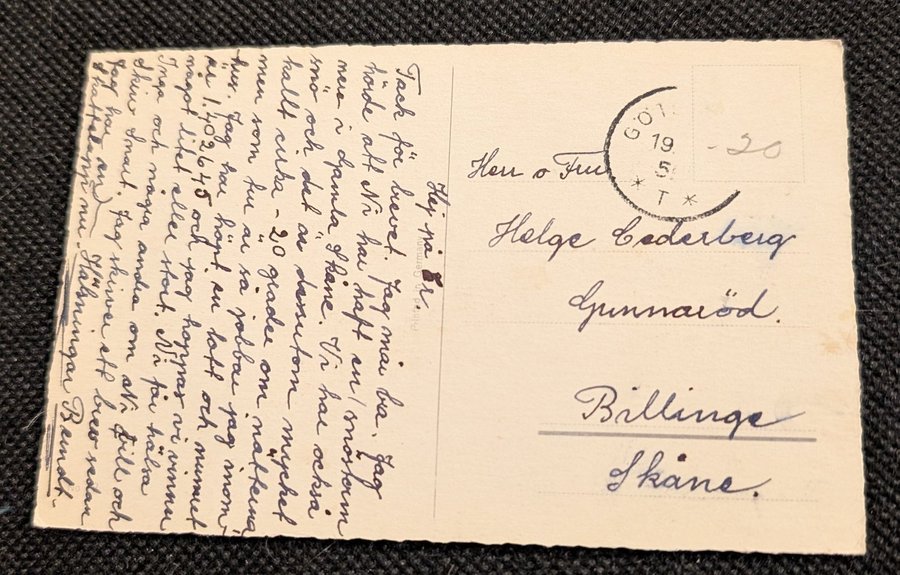 Hej på Er.
Tack för brevet. Jag mår bra. Jag
hörde att Ni har haft en snöstorm
nere i gamla Skåne. Vi har också
snö och det är dessutom mycket
kallt cirka -20 grader om nätterna
men som tur är så jobbar jag inom-
hus. Jag har köpt en lott och numret
är 1.402645 och jag hoppas vi vinner
något litet eller stort. Ni får hälsa
Inga och några andra om Ni vill och
skriv snart. Jag skriver ett brev sedan
Jag har
nu. Hälsningar Berndt.
Herr o Fru
Helge Cederberg
Gunnaröd.
Billinge
Skåne.
GÖT
19
5
* T *
-20